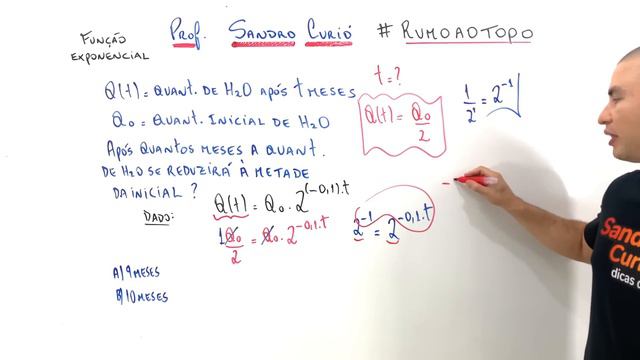 FUNÇÃO
EXPONENCIAL
Prof. SANDRO CURIÓ # RUMOAOTOPO
Q(t) = QUANT. DE H2O APÓS t MESES
Q0 = QUANT. INICIAL DE H2O
APÓS QUANTOS MESES A QUANT.
DE H2O SE REDUZIRÁ À METADE
DA INICIAL ?
DADO:
Q(t) = Q0 . 2^(-0,1).t
1Q0/2 = Q0 . 2^-0,1.t
2^-1 = 2^-0,1.t
t = ?
Q(t) = Q0/2
1/2^1 = 2^-1
-
A) 9 MESES
B) 10 MESES
Sand
Curi
dicas d